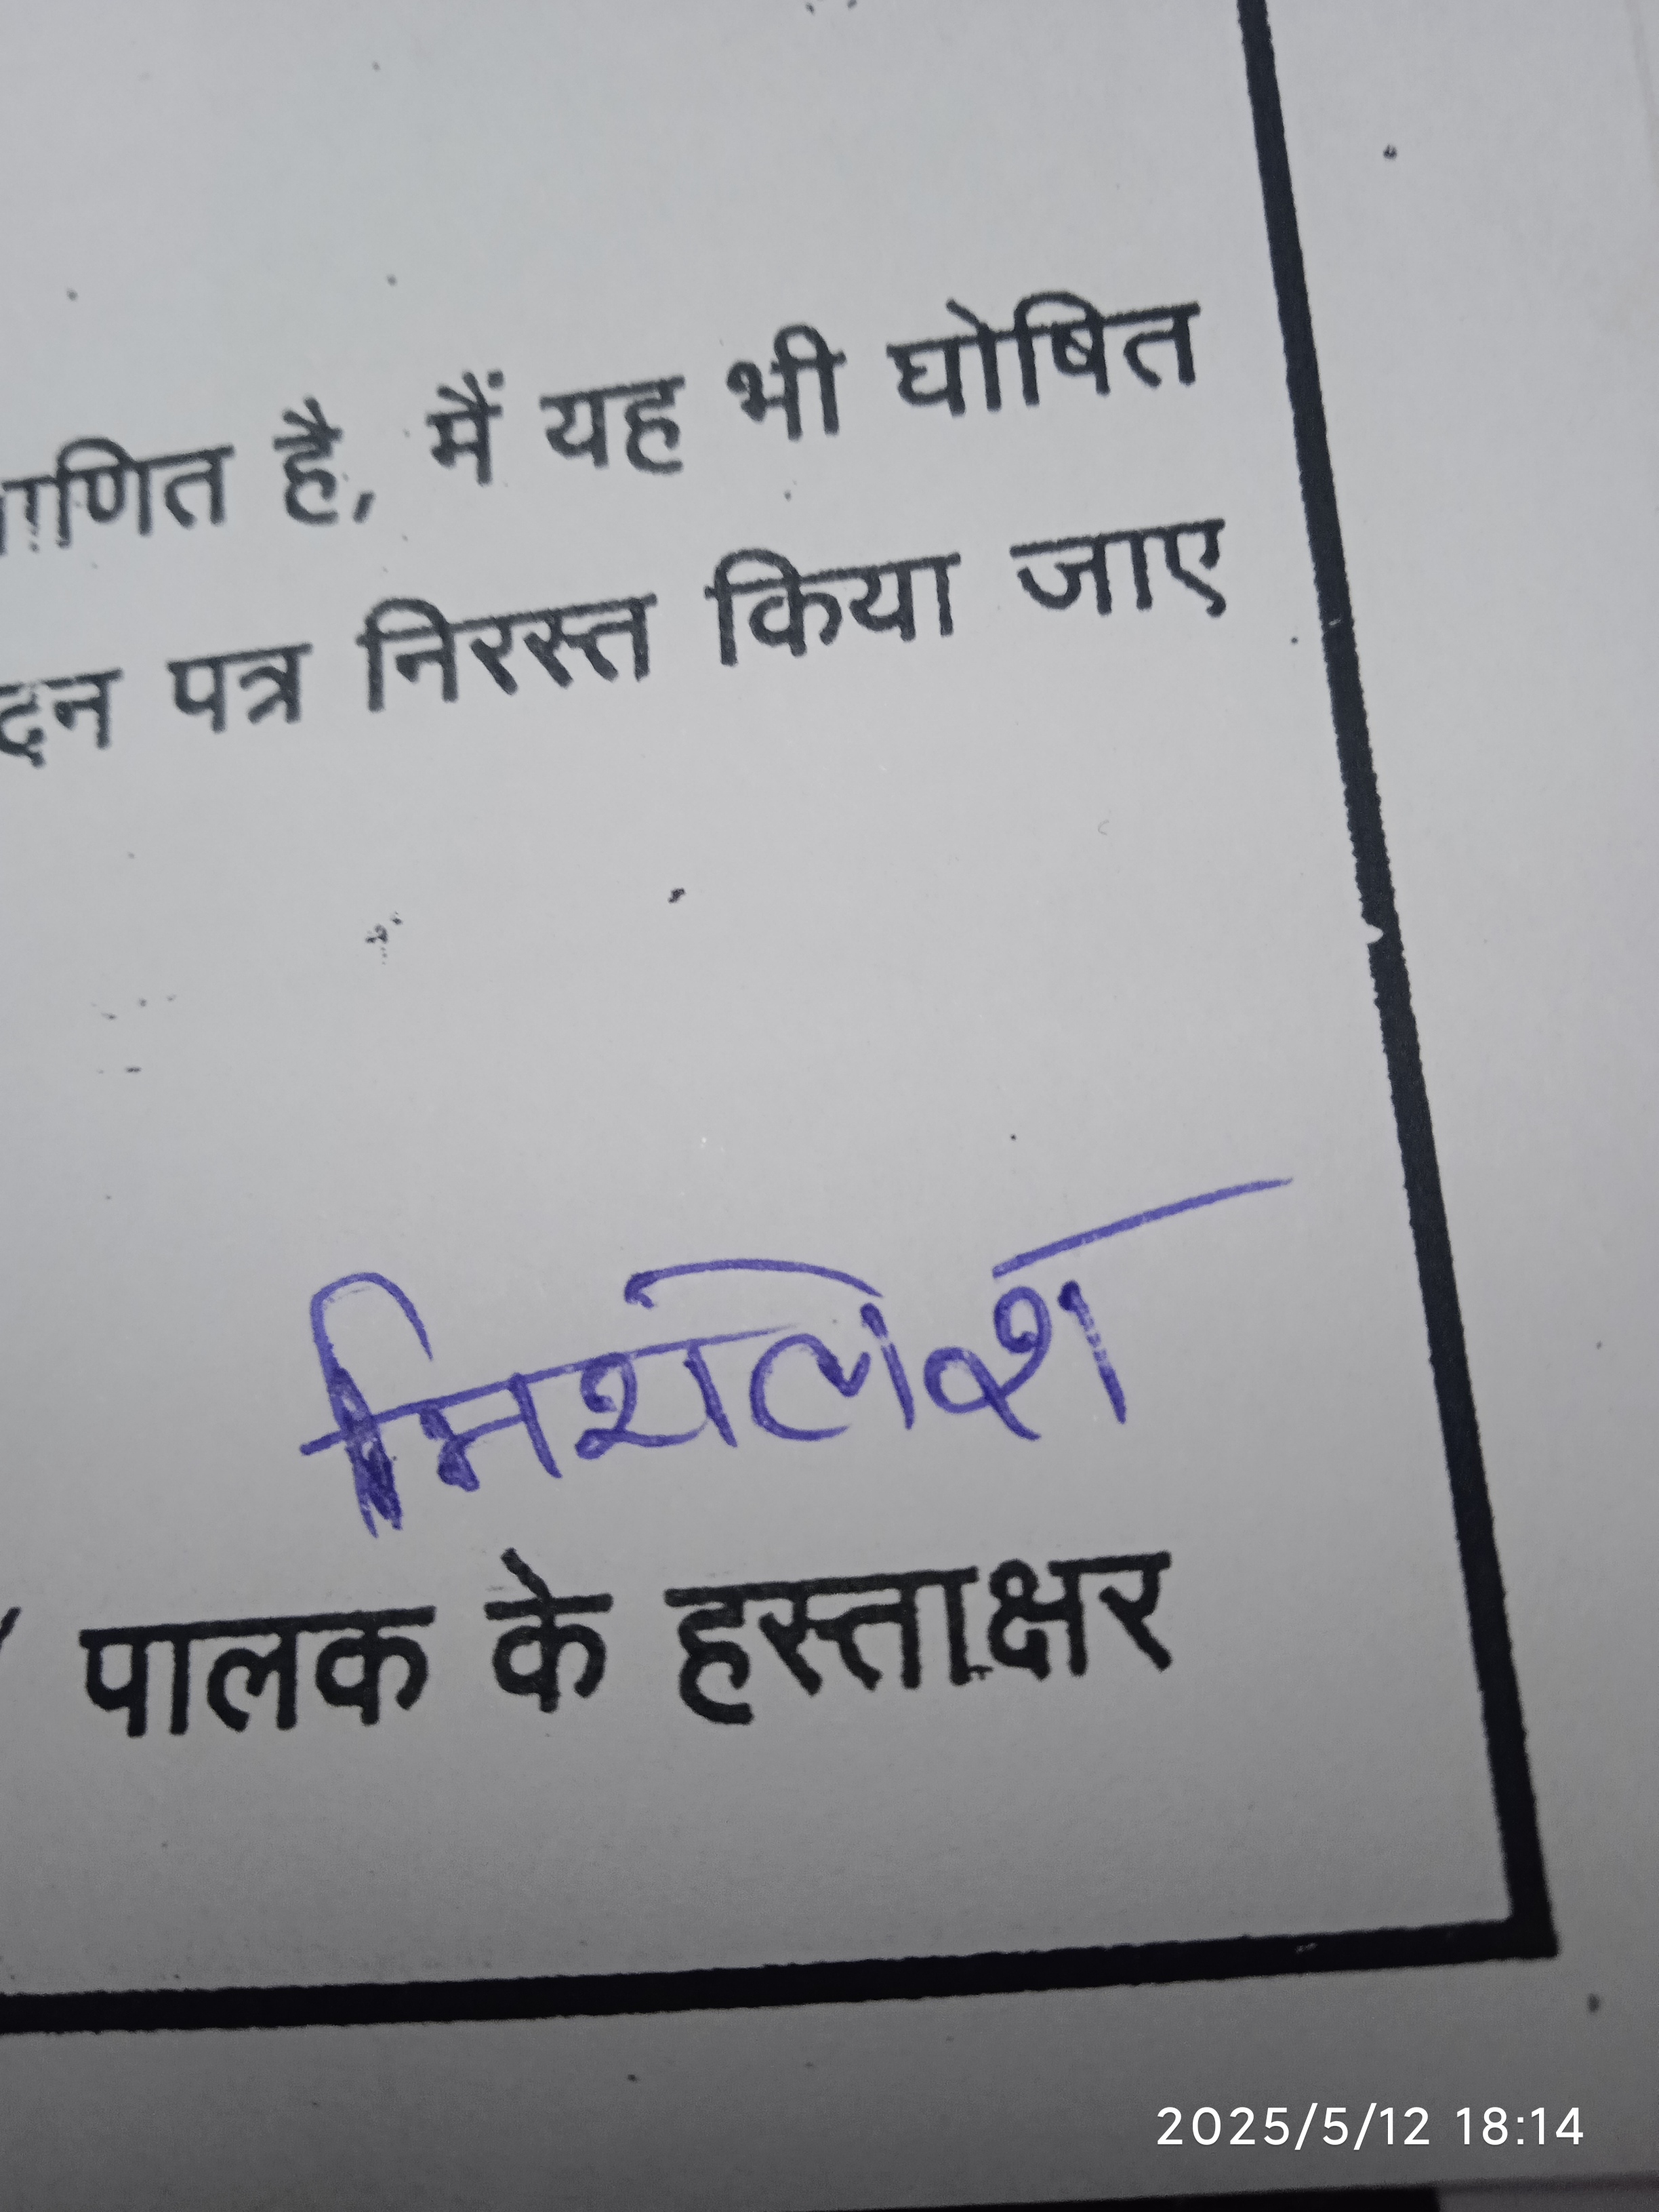 ाणित है, मैं यह भी घोषित
दन पत्र निरस्त किया जाए
मिथलेश
पालक के हस्ताक्षर
2025/5/12 18:14